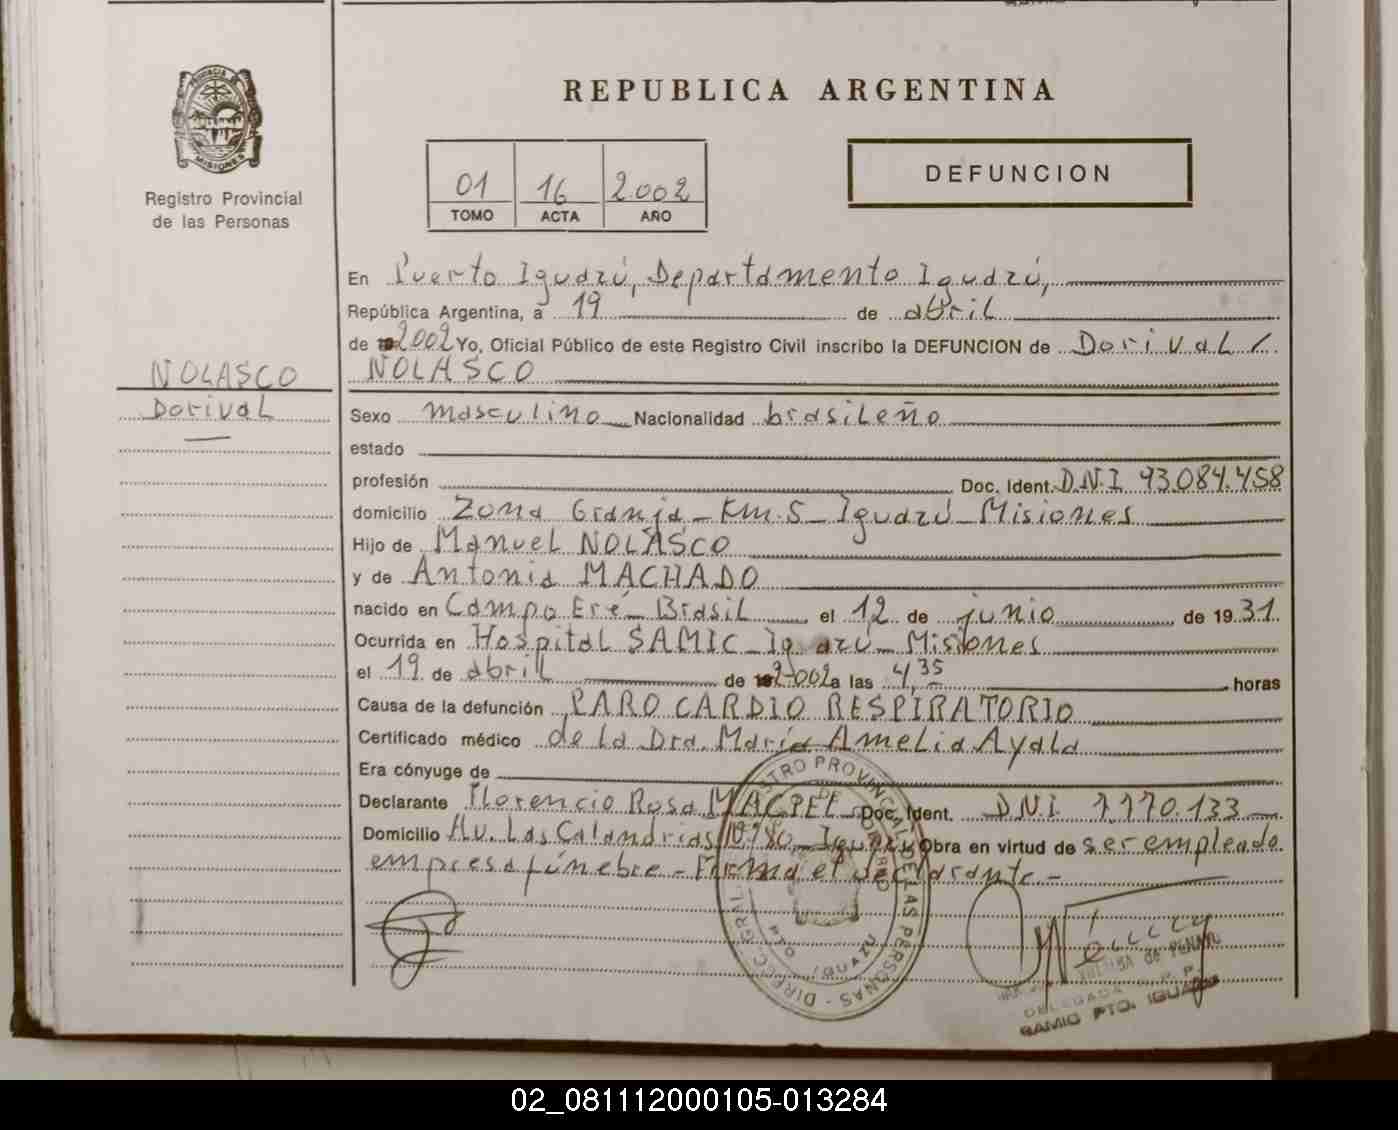 REPUBLICA ARGENTINA
PROVINCIA DE MISIONES
Registro Provincial
de las Personas
01 16 2.002
TOMO ACTA AÑO
DEFUNCION
En Puerto Iguazú, Departamento Iguazú,
República Argentina, a 19 de abril
de 2002 Yo, Oficial Público de este Registro Civil inscribo la DEFUNCION de Dorival
NOLASCO
NOLASCO
Dorival
Sexo masculino Nacionalidad brasileño
estado
profesión Doc. Ident. D.N.I 93.084.458
domicilio Zona Granja - Km.5 - Iguazú - Misiones
Hijo de Manuel NOLASCO
y de Antonia MACHADO
nacido en Campo Eré - Brasil el 12 de junio de 1931
Ocurrida en Hospital SAMIC - Iguazú - Misiones
el 19 de abril de 2.002 a las 4,35 horas
Causa de la defunción PARO CARDIO RESPIRATORIO
Certificado médico de la Dra. María Amelia Ayala
Era cónyuge de
Declarante Florencio Rosa Doc. Ident. D.N.I. 7.170.133
Domicilio Av. Las Calandrias Iguazú Obra en virtud de ser empleado
empresa fúnebre - Firma el declarante -
REGISTRO PROVINCIAL DE LAS PERSONAS - DIREC. GRAL.
IGUAZU
DELEGADA R.P.P.
SAMIC PTO. IGUAZU
02_081112000105-013284